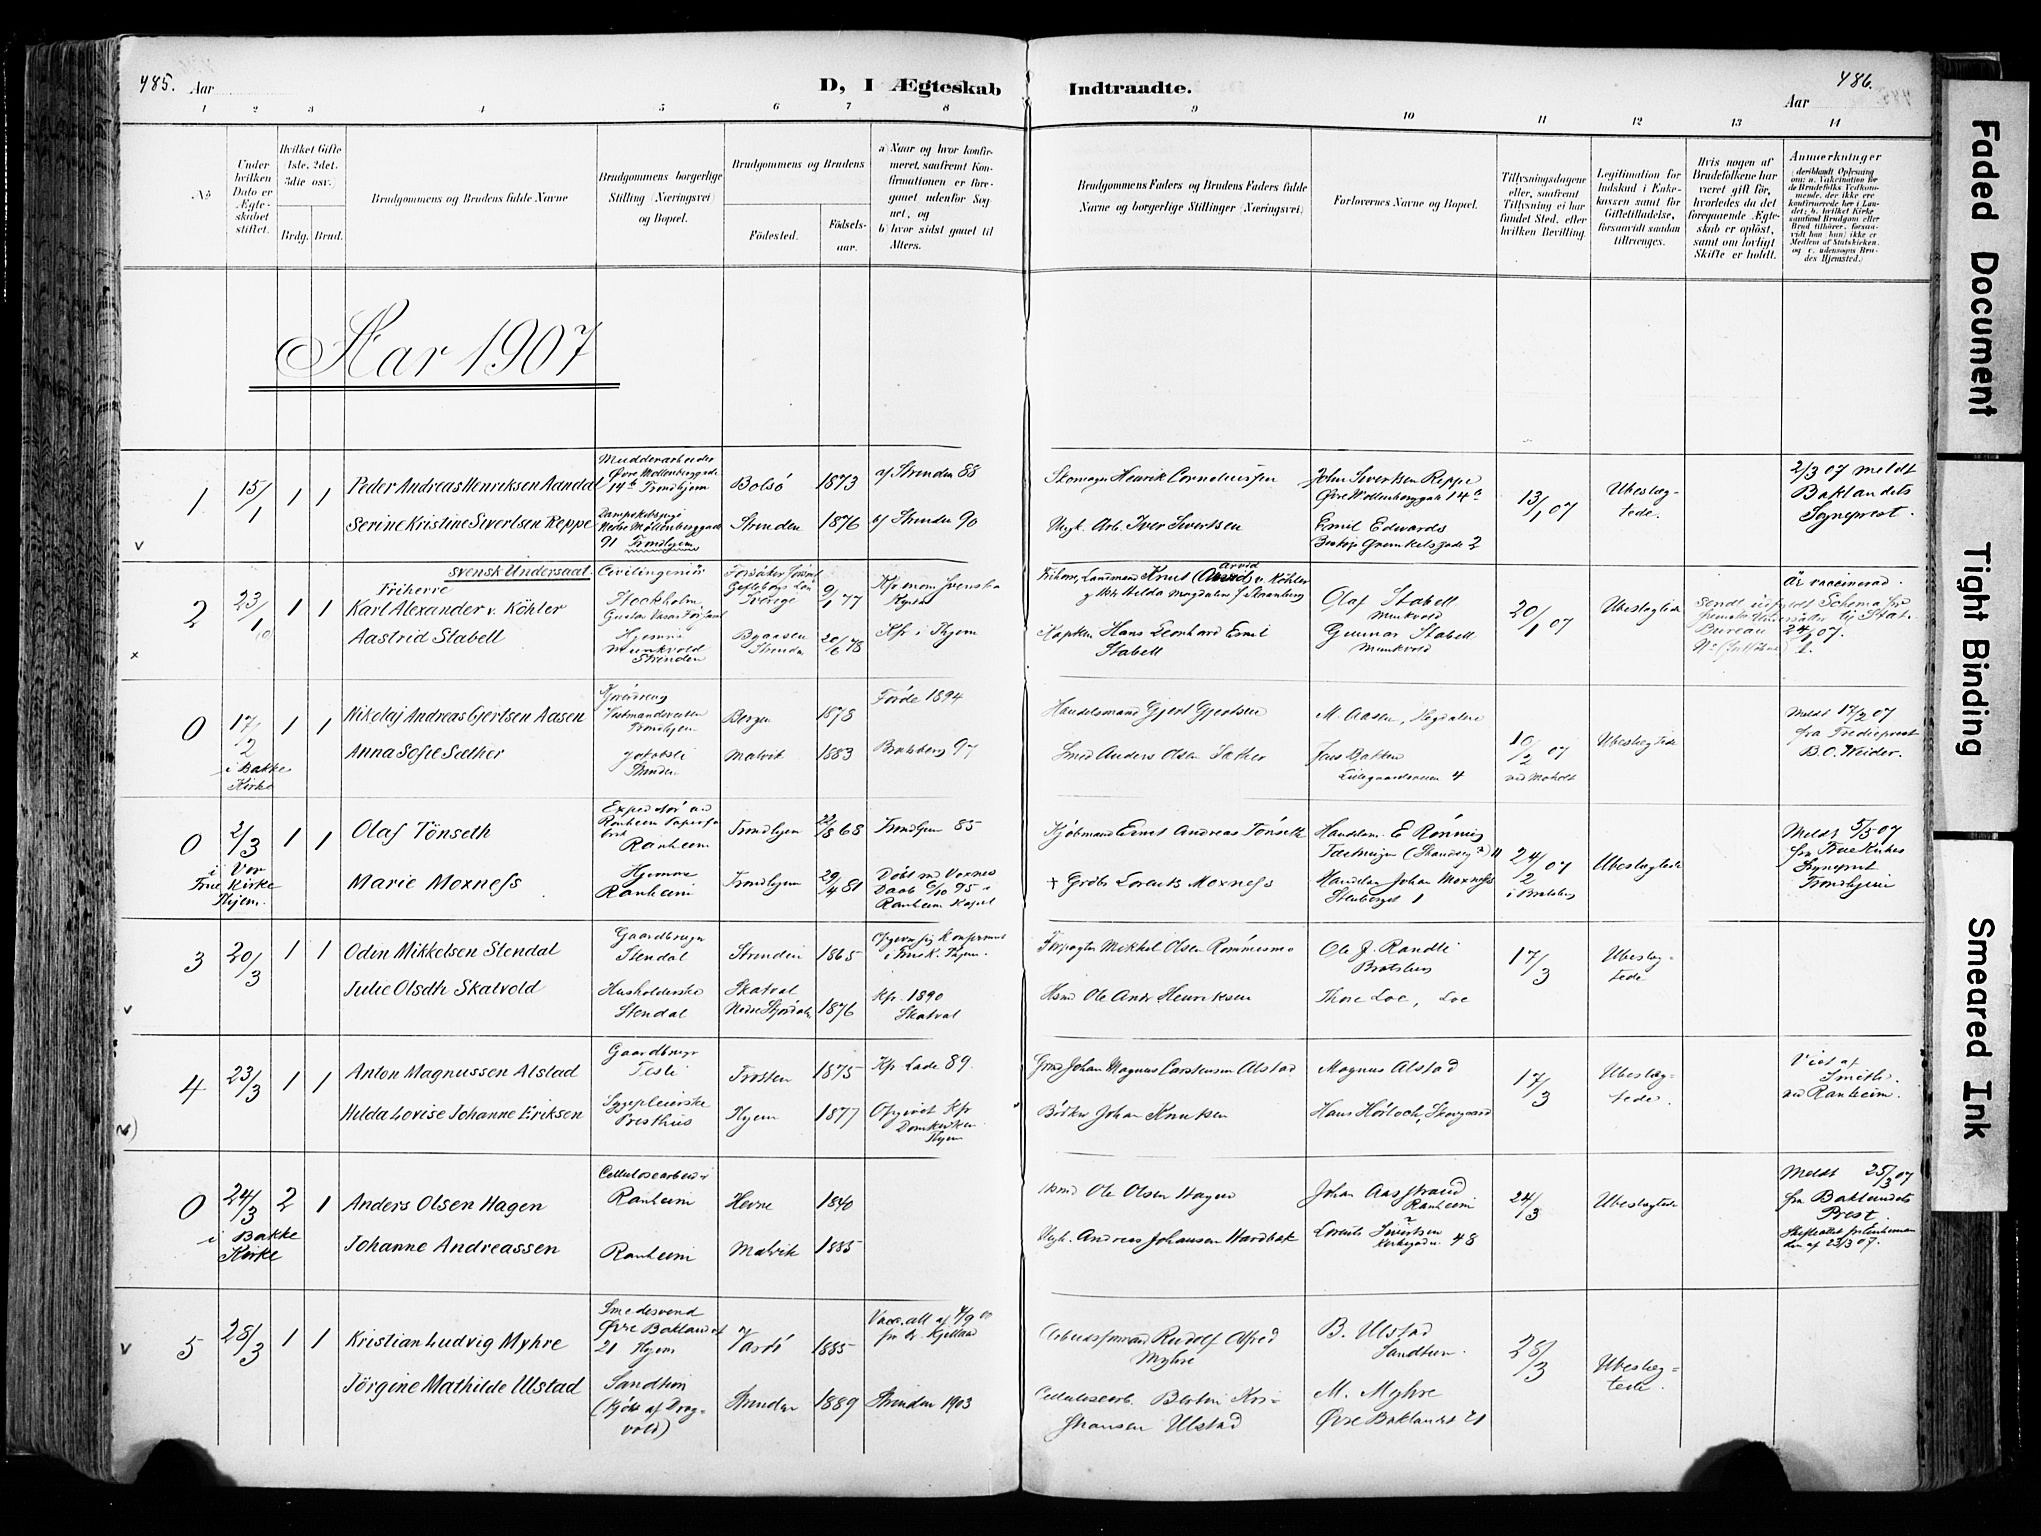 485. Aar
D, I Ægteskab Indtraadte.
486.
Aar
1 2 3 4 5 6 7 8 9 10 11 12 13 14
No
Under hvilken Dato er Ægteskabet stiftet.
Hvilket Gifte 1ste. 2det. 3die osv.
Brdg. Brud.
Brudgommens og Brudens fulde Navne
Brudgommens borgerlige Stilling (Næringsvei) og Bopæl.
Brudgommens og Brudens
Fødested.
Fødselsaar.
a) Naar og hvor konfirmeret, saafremt Konfirmationen er foregaaet udenfor Sognet, og
b) hvor sidst gaaet til Alters.
Brudgommens Faders og Brudens Faders fulde Navne og borgerlige Stillinger (Næringsvei)
Forlovernes Navne og Bopæl.
Tillysningsdagene eller, saafremt Tillysning ei har fundet Sted, efter hvilken Bevilling.
Legitimation for Indskud i Enkekassen samt for Giftetilladelse, forsaavidt saadan tiltrænges.
Hvis nogen af Brudefolkene har været gift før, hvorledes da det foregaaende Ægteskab er opløst, samt om lovligt Skifte er holdt.
Anmærkninger
(deriblandt Oplysning om: a. Vaccination for de Brudefolks Vedkommende, der ikke ere konfirmerede her i Landet; b. hvilket Kirkesamfund Brudgom eller Brud tilhører, forsaavidt han (hun) ikke er Medlem af Statskirken, og c. udensogns Brudes Hjemsted.)
Aar 1907
1 15/1 1 1 Peder Andreas Henriksen Aandal
Mudderarbeider Øvre Møllenberggade 14b Trondhjem
Bolsø 1873 a/ Strinden 88
Skomager Henrik Corneliussen
John Sivertsen Reppe
Øvre Møllenberggade 14b
13/1 07
Ubeslægtede.
2/3 07 meldt Baklandets Sogneprest.
Serine Kristine Sivertsen Reppe
Nedre Møllenberggade 91 Trondhjem
Strinden 1876 b/ Strinden 90
Arb. Iver Sivertsen
Emil Edwards
2 23/1 1 1 svensk Undersaat.
Friherre Karl Alexander v. Köhler
Civilingeniør Stockholm
Sverige 9/1 77
Knut (Arvid) v. Köhler
Olaf Stabell Munkvold
20/1 07
Ubeslægtede
Är vaccinerad.
Bureau 24/1 07.
Aastrid Stabell
Hjemme Munkvold Strinden
Byaasen Strinden 20/6 78 Kfr i Thjem
Kaptein Hans Leonhard Emil Stabell
Gunnar Stabell Munkvold
0 17/2 i Bakke Kirke 1 1 Nikolaj Andreas Gjertsen Aasen
Trondhjem
Bergen 1878 Førde 1894
Handelsmand Gjert Gjertsen
M. Aasen,
10/2 07 ved Moholt
Ubeslægtede
Meldt 17/2 07 fra Tredieprest B. O. Weider.
Anna Sofie Sæther
Jakobsli Strinden
Malvik 1883 Bratsberg 97
Smed Anders Olsen Sæther
Jens Bakken
4
0 2/3 i Vor Frue Kirke Thjem. 1 1 Olaf Tönseth
Expeditør ved Ranheim Papirfabrik Ranheim
Trondhjem 22/8 68 Trondhjem 85
Kjøbmand Ernst Andreas Tønseth
Handelsm. E Rønning
24/2 07 i Bratsberg
Ubeslægtede
Meldt 5/3 07 fra Frue Kirkes Sogneprest Trondhjem
Marie Moxness
Hjemme Ranheim
Trondhjem 29/4 81
Døbt ved Voxnes Daab 6/10 95 i Ranheim Kapel
† Grdbr Lorents Moxness
Handelsm Johan Moxness
Stenberget 1
3 20/3 1 1 Odin Mikkelsen Stendal
Gaardbruger Stendal
Strinden 1865
Opgiver sig Konfirmeret i Frue K. Thjem.
Mikkel Olsen Rømmesmo
Ole J. Randli Bratsberg
17/3
Ubeslægtede
Julie Olsdtr Skatvold
Husholderske Stendal
Skatval Nedre Stjørdalen 1876
Kfr. 1890 Skatval
Hsmd Ole Andr Henriksen
Thore Loe, Loe
4 23/3 1 1 Anton Magnussen Alstad
Gaardbruger Tesli
Frosten 1875 Kfr. Lade 89.
Johan Magnus Carstensen Alstad
Magnus Alstad
17/3
Ubeslægtede.
Viet af Smith ved Ranheim.
Hilda Lovise Johanne Eriksen
Sygepleierske Presthus
Thjem 1877
Opgivet Kfr Domkirken Thjem
Bødker Johan Knutsen
0 24/3 i Bakke Kirke 2 1 Anders Olsen Hagen
Cellulosearbeider Ranheim
Hevne 1840
Hsmd Ole Olsen Hagen
Johan Aasstrand Ranheim
24/3
Ubeslægtede
Meldt 25/3 07 fra Baklandets Prest.
Johanne Andreassen
Ranheim
Malvik 1885
Andreas Johansen Hardbak
Lorents Sivertsen
48
5 28/3 1 1 Kristian Ludvig Myhre
Smedesvend Øvre Baklandet 21 Thjem
Vardø 1885
Vacc. att af 4/9 00
Arbeidsformand Rudolf Alfred Myhre
B. Ulstad
28/3
Ubeslægtede.
Jörgine Mathilde Ulstad
Strinden 1889 Strinden 1903
Cellulosearb. Kristiansen Ulstad
M. Myhre
Øvre Baklandet 21
Faded Document
Tight Binding
Smeared Ink